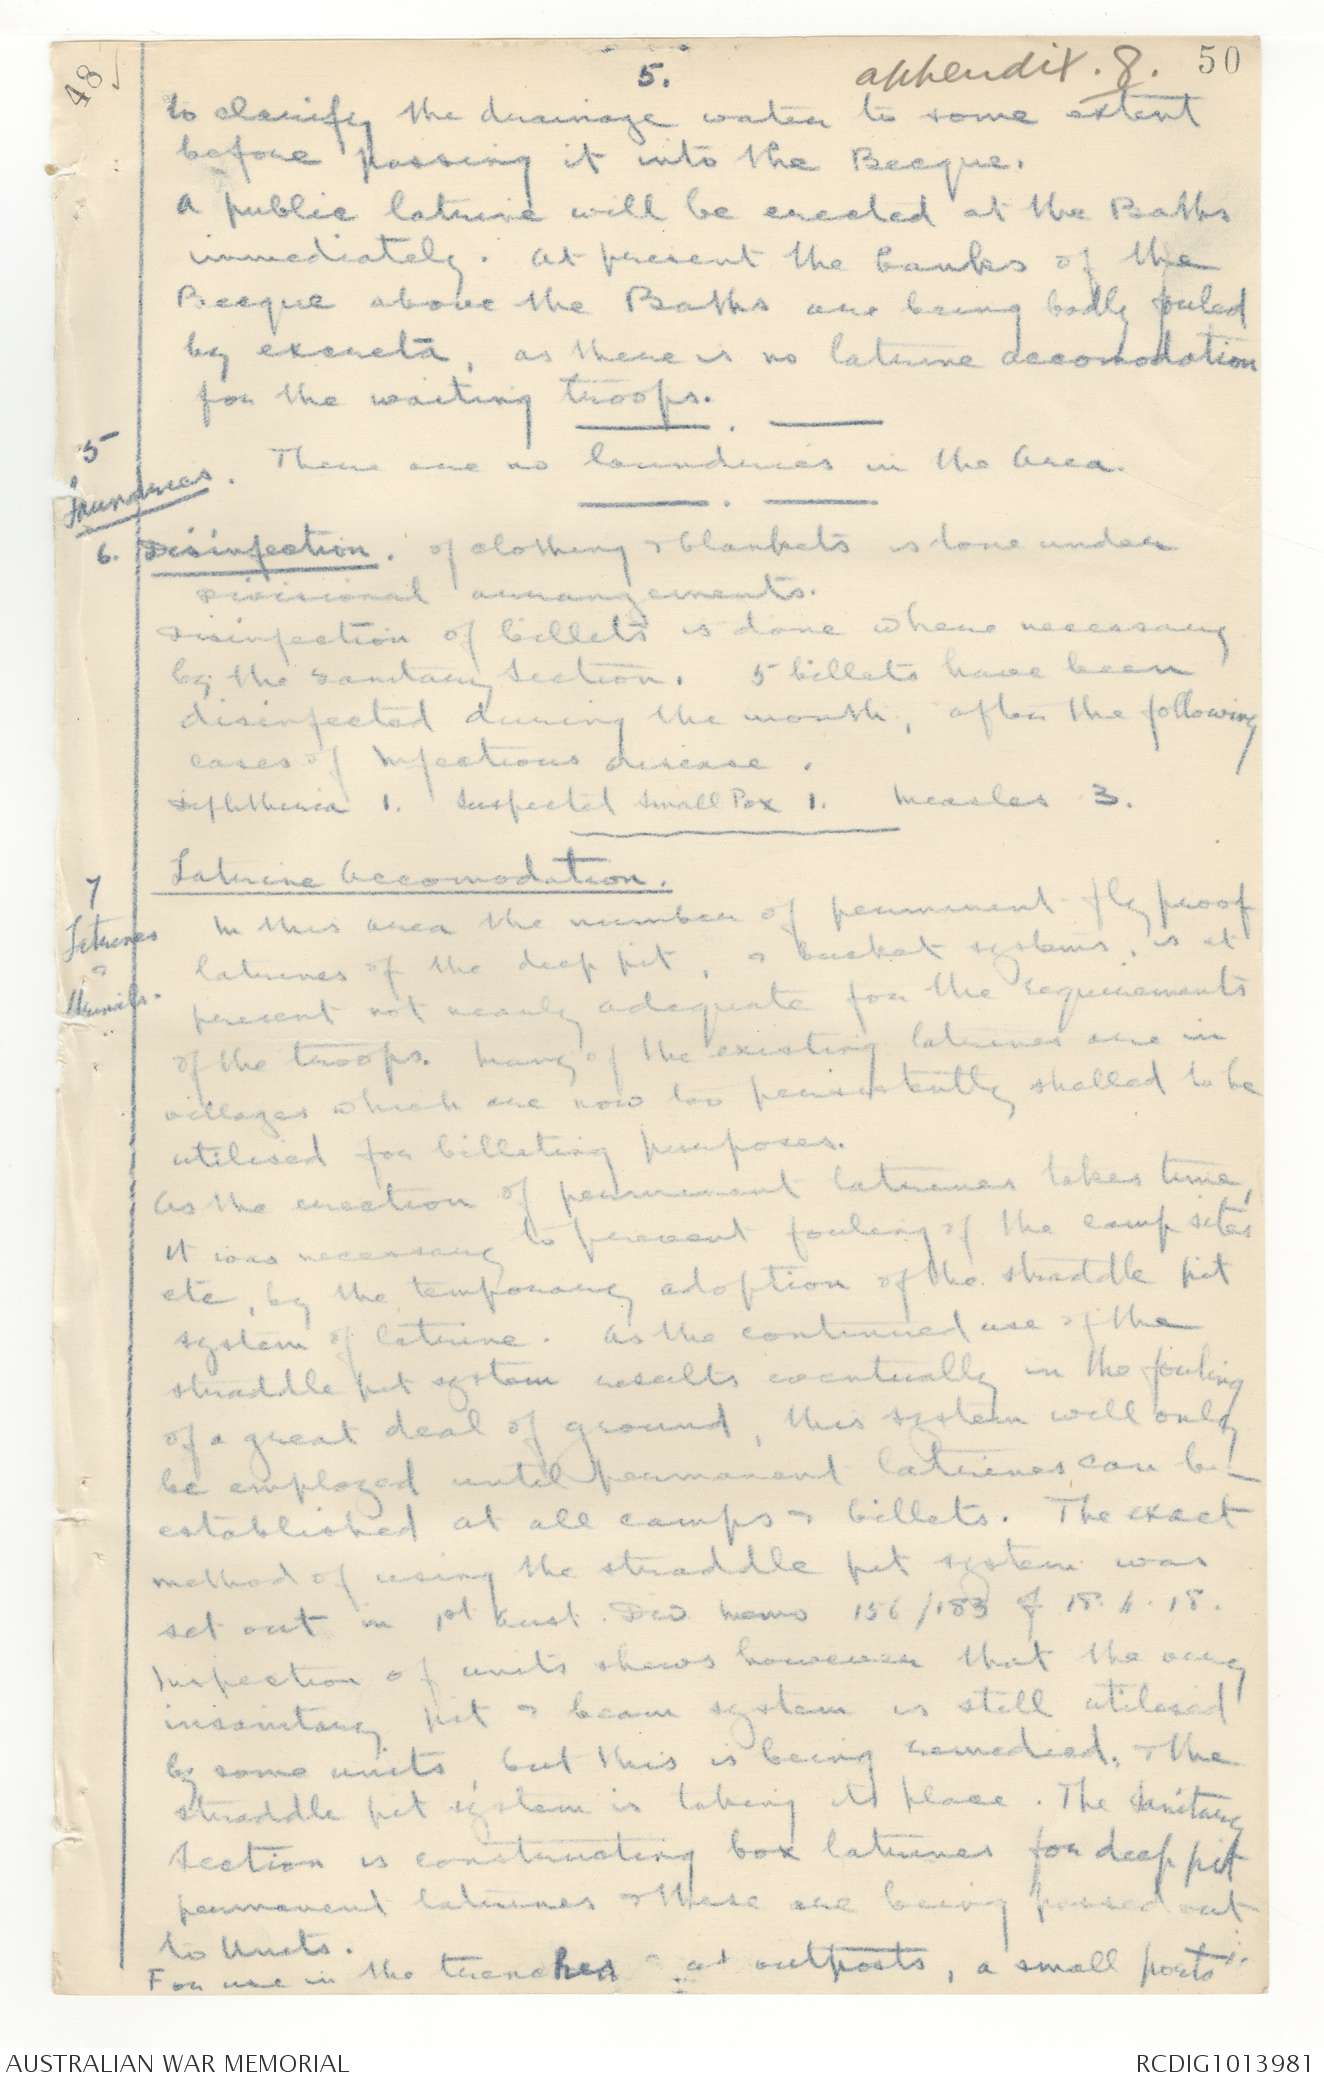 48
5.
appendix. 8.
50
to clarify the drainage water to some extent
before passing it into the Becque.
A public latrine will be erected at the Baths
immediately. At present the banks of the
Becque above the Baths are being badly fouled
by excreta, as there is no latrine accomodation
for the waiting troops.
5
Laundries.
There are no laundries in the Area.
6. Disinfection. of clothing & blankets is done under
Divisional arrangements.
Disinfection of billets is done where necessary
by the Sanitary Section. 5 billets have been
disinfected during the month, after the following
cases of Infectious disease.
Diphtheria 1. Suspected Small Pox 1. Measles 3.
7
Latrines
&
Urinals.
Latrine Accomodation.
In this area the number of permanent fly proof
latrines of the deep pit, & bucket systems, is at
present not nearly adequate for the requirements
of the troops. Many of the existing latrines are in
villages which are now too persistently shelled to be
utilised for billeting purposes.
As the erection of permanent latrines takes time,
it was necessary to prevent fouling of the camp sites
etc, by the temporary adoption of the straddle pit
system of latrine. As the continued use of the
straddle pit system results eventually in the fouling
of a great deal of ground, this system will only
be employed until permanent latrines can be
established at all camps & billets. The exact
method of using the straddle pit system was
set out in 1st Aust. Div memo 156/183 of 18. 6. 18.
Inspection of units shews however that the very
insanitary pit & beam system is still utilised
by some units, but this is being remedied, & the
straddle pit system is taking its place. The Sanitary
Section is constructing box latrines for deep pit
permanent latrines & these are being passed out
to Units.
For use in the trenches & at outposts, a small
AUSTRALIAN WAR MEMORIAL
RCDIG1013981